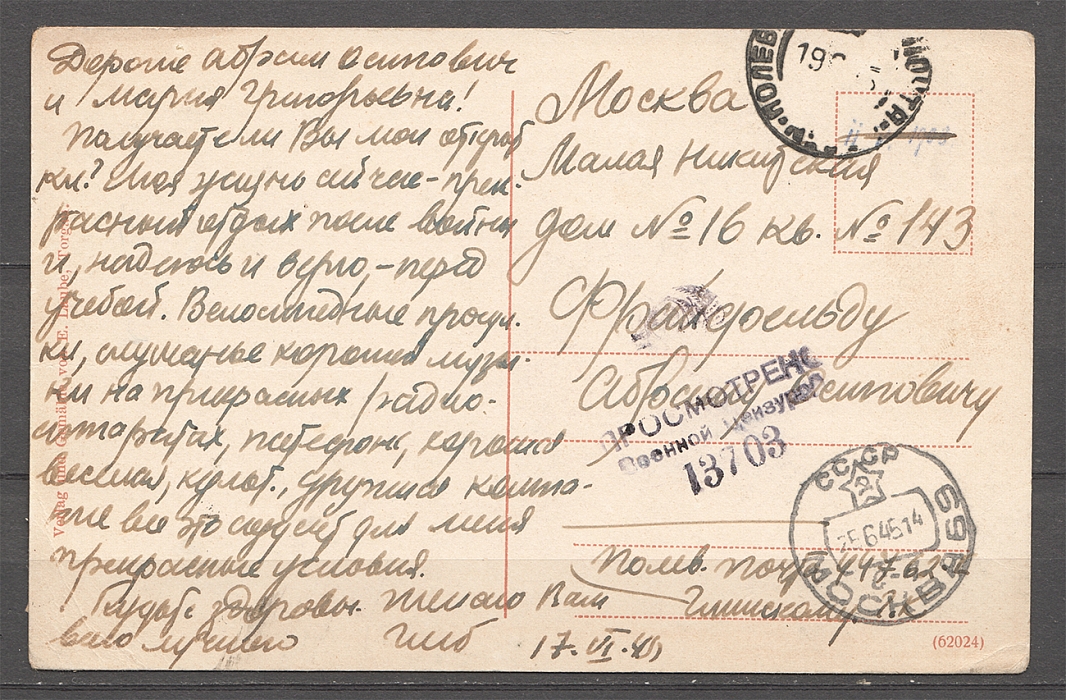 Дорогие Абрам Осипович
и Мария Григорьевна!
Получаете ли Вы мои открыт
ки? Моя жизнь сейчас – прек-
расный отдых после войны
и, надеюсь и верю, – перед
учебой. Велосипедные прогул-
ки, слушанье хорошей музы-
ки на прекрасных радио-
аппаратах, патефоне, хорошая
веселая, культ., дружная компа-
ния все это создает для меня
прекрасные условия.
Будьте здоровы. Желаю Вам
всего лучшего
Глеб
17.VI.45
Москва
Малая Никитская
дом № 16 кв. № 143
Франкфельду
Абраму Осиповичу
Полев. почта
ПОЛЕВ ПОЧТА
ПРОСМОТРЕНО
Военной Цензурой
13703
СССР
25 6 45 14
МОСКВА
Verlag und E. Laube, Torgau
(62024)